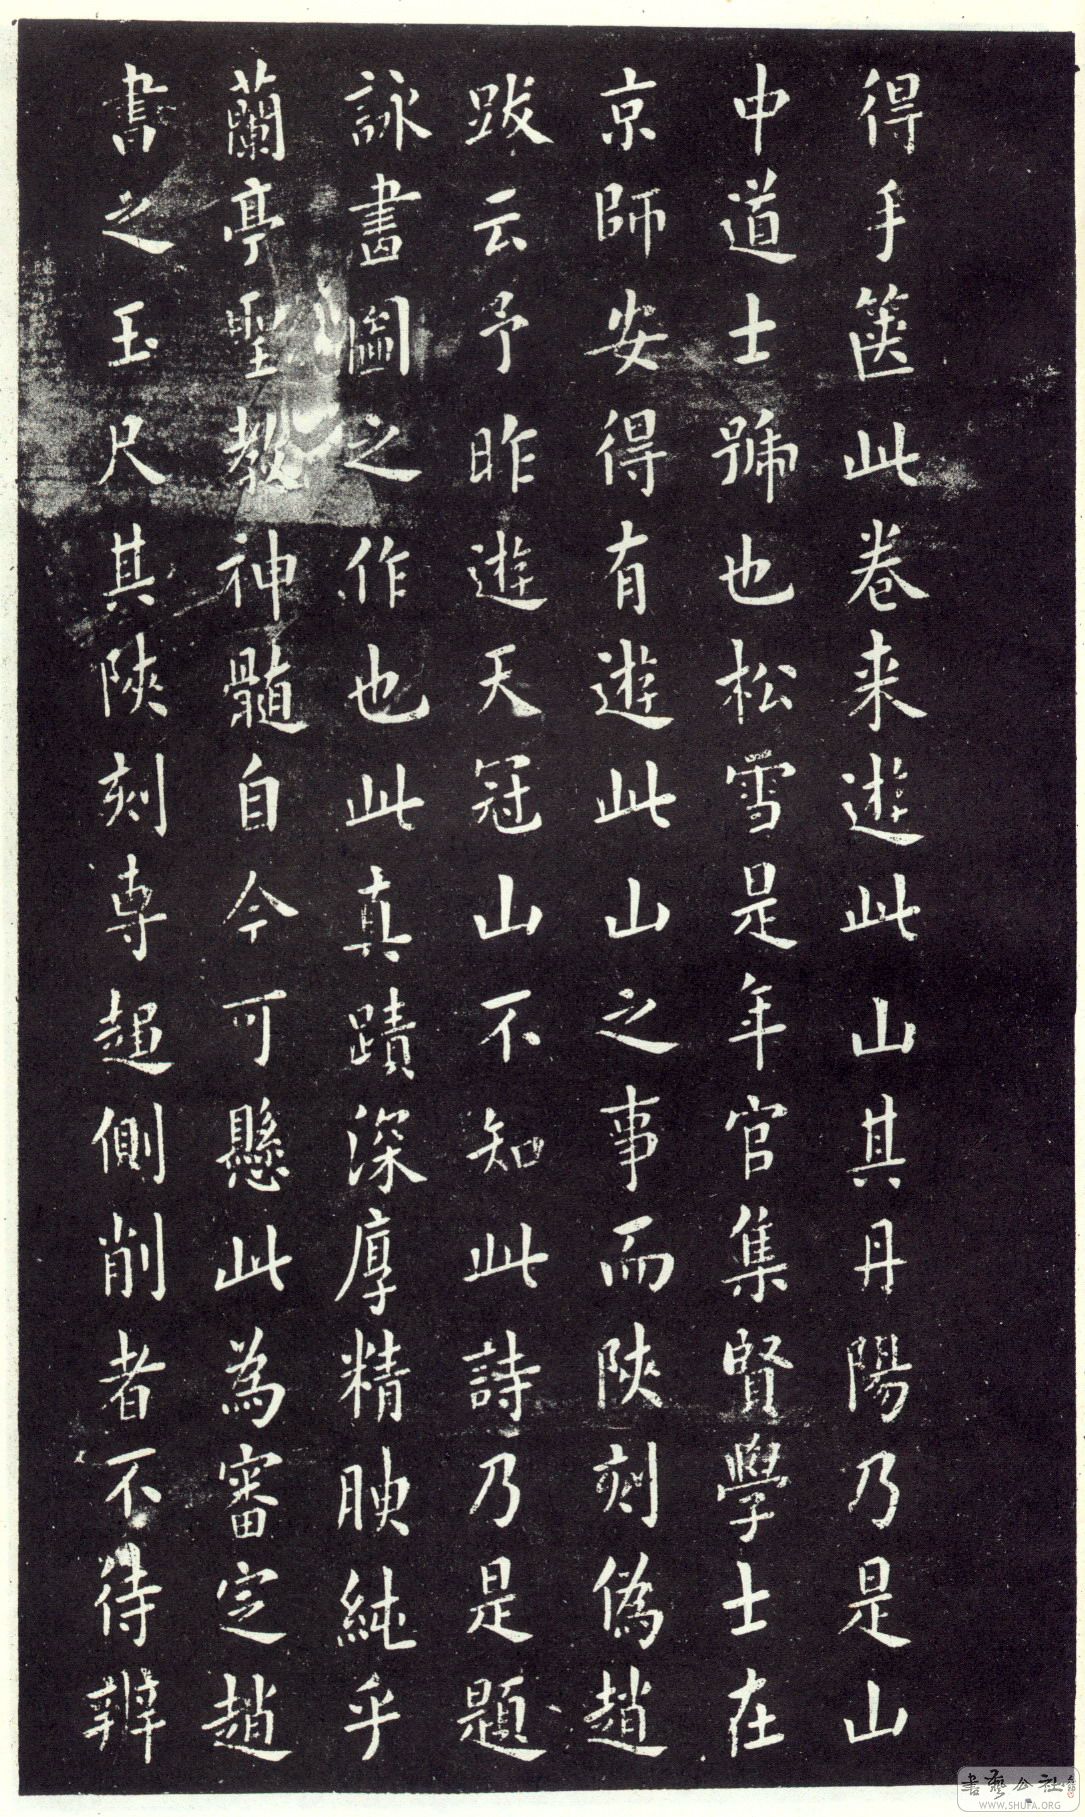 得手箧此卷来遊此山其丹陽乃是山
中道士號也松雪是年官集賢學士在
京師安得有遊此山之事而陕刻偽趙
跋云予昨遊天冠山不知此詩乃是題
詠畫圖之作也此真蹟深厚精腴純乎
蘭亭聖教神髓自今可懸此為審定趙
書之玉尺其陕刻專趨側削者不待辨
書藝公社
WWW.SHUFA.ORG